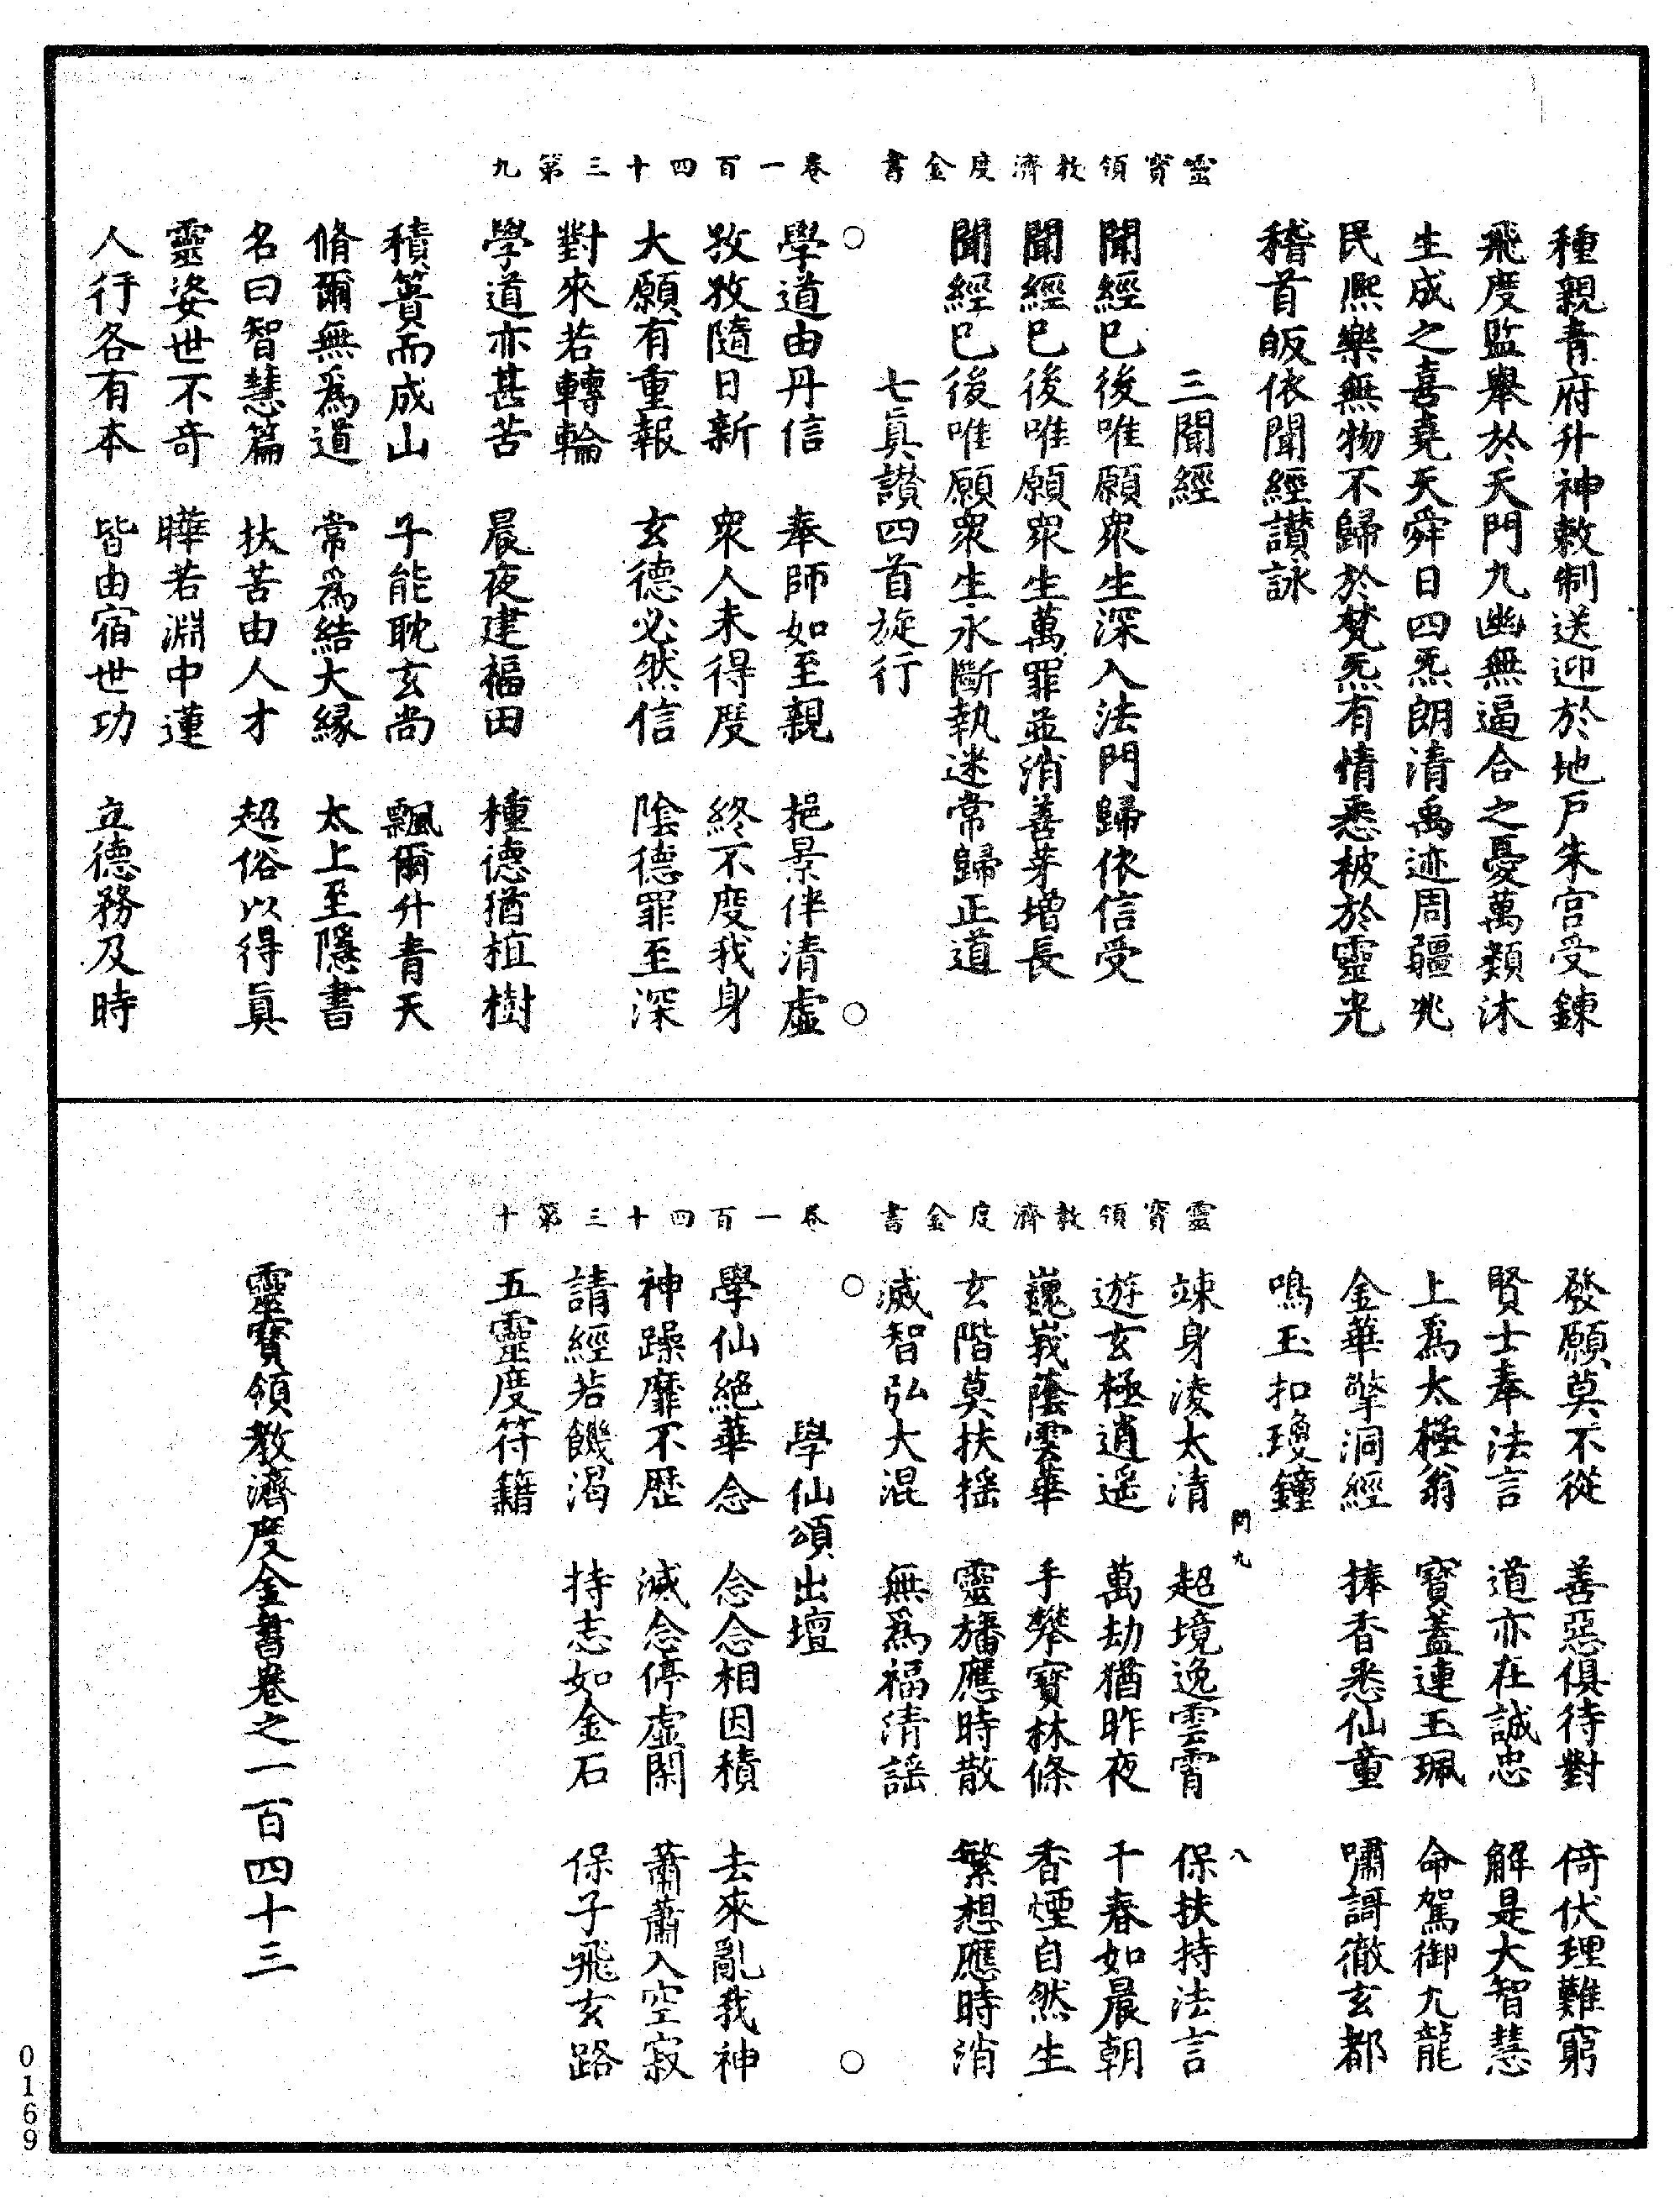 種親青府升神敕制送迎於地戶朱宮受鍊
飛度監舉於天門九幽無逼合之憂萬類沐
生成之喜堯天舜日四炁朗清禹迹周疆兆
民熙樂無物不歸於梵炁有情悉被於靈光
稽首皈依聞經讚詠
三聞經
聞經已後唯願眾生深入法門歸依信受
聞經已後唯願眾生萬罪並消善芽增長
聞經已後唯願眾生永斷執迷常歸正道
七眞讃四首旋行
靈寶領教濟度金書　卷一百四十三第九
學道由丹信　奉師如至親　挹景伴清虛
孜孜隨日新　眾人未得度　終不度我身
大願有重報　玄德必然信　陰德罪至深
對來若轉輪
學道亦甚苦　晨夜建福田　種德猶植樹
積簣而成山　子能耽玄尚　飄爾升青天
脩爾無爲道　常爲結大緣　太上至隱書
名曰智慧篇　扶苦由人才　超俗以得眞
靈姿世不奇　曄若淵中蓮
人行各有本　皆由宿世功　立德務及時
發願莫不從　善惡俱待對　倚伏理難窮
賢士奉法言　道亦在誠忠　解是大智慧
上爲太極翁　寶蓋連玉珮　命駕御九龍
金華擎洞經　捧香悉仙童　嘯謌徹玄都
鳴玉扣瓊鐘
問九　八
竦身淩太清　超境逸雲霄　保扶持法言
遊玄極逍遥　萬劫猶昨夜　千春如晨朝
巍峩蔭雲華　手攀寶林條　香煙自然生
玄階莫扶搖　靈旛應時散　繁想應時消
滅智弘大混　無爲福清謡
靈寶領教濟度金書　卷一百四十三第十
學仙頌出壇
學仙絶華念　念念相因積　去來亂我神
神躁靡不歷　滅念停虛閑　蕭蕭入空寂
請經若饑渴　持志如金石　保子飛玄路
五靈度符籍
靈寶領教濟度金書卷之一百四十三
0169